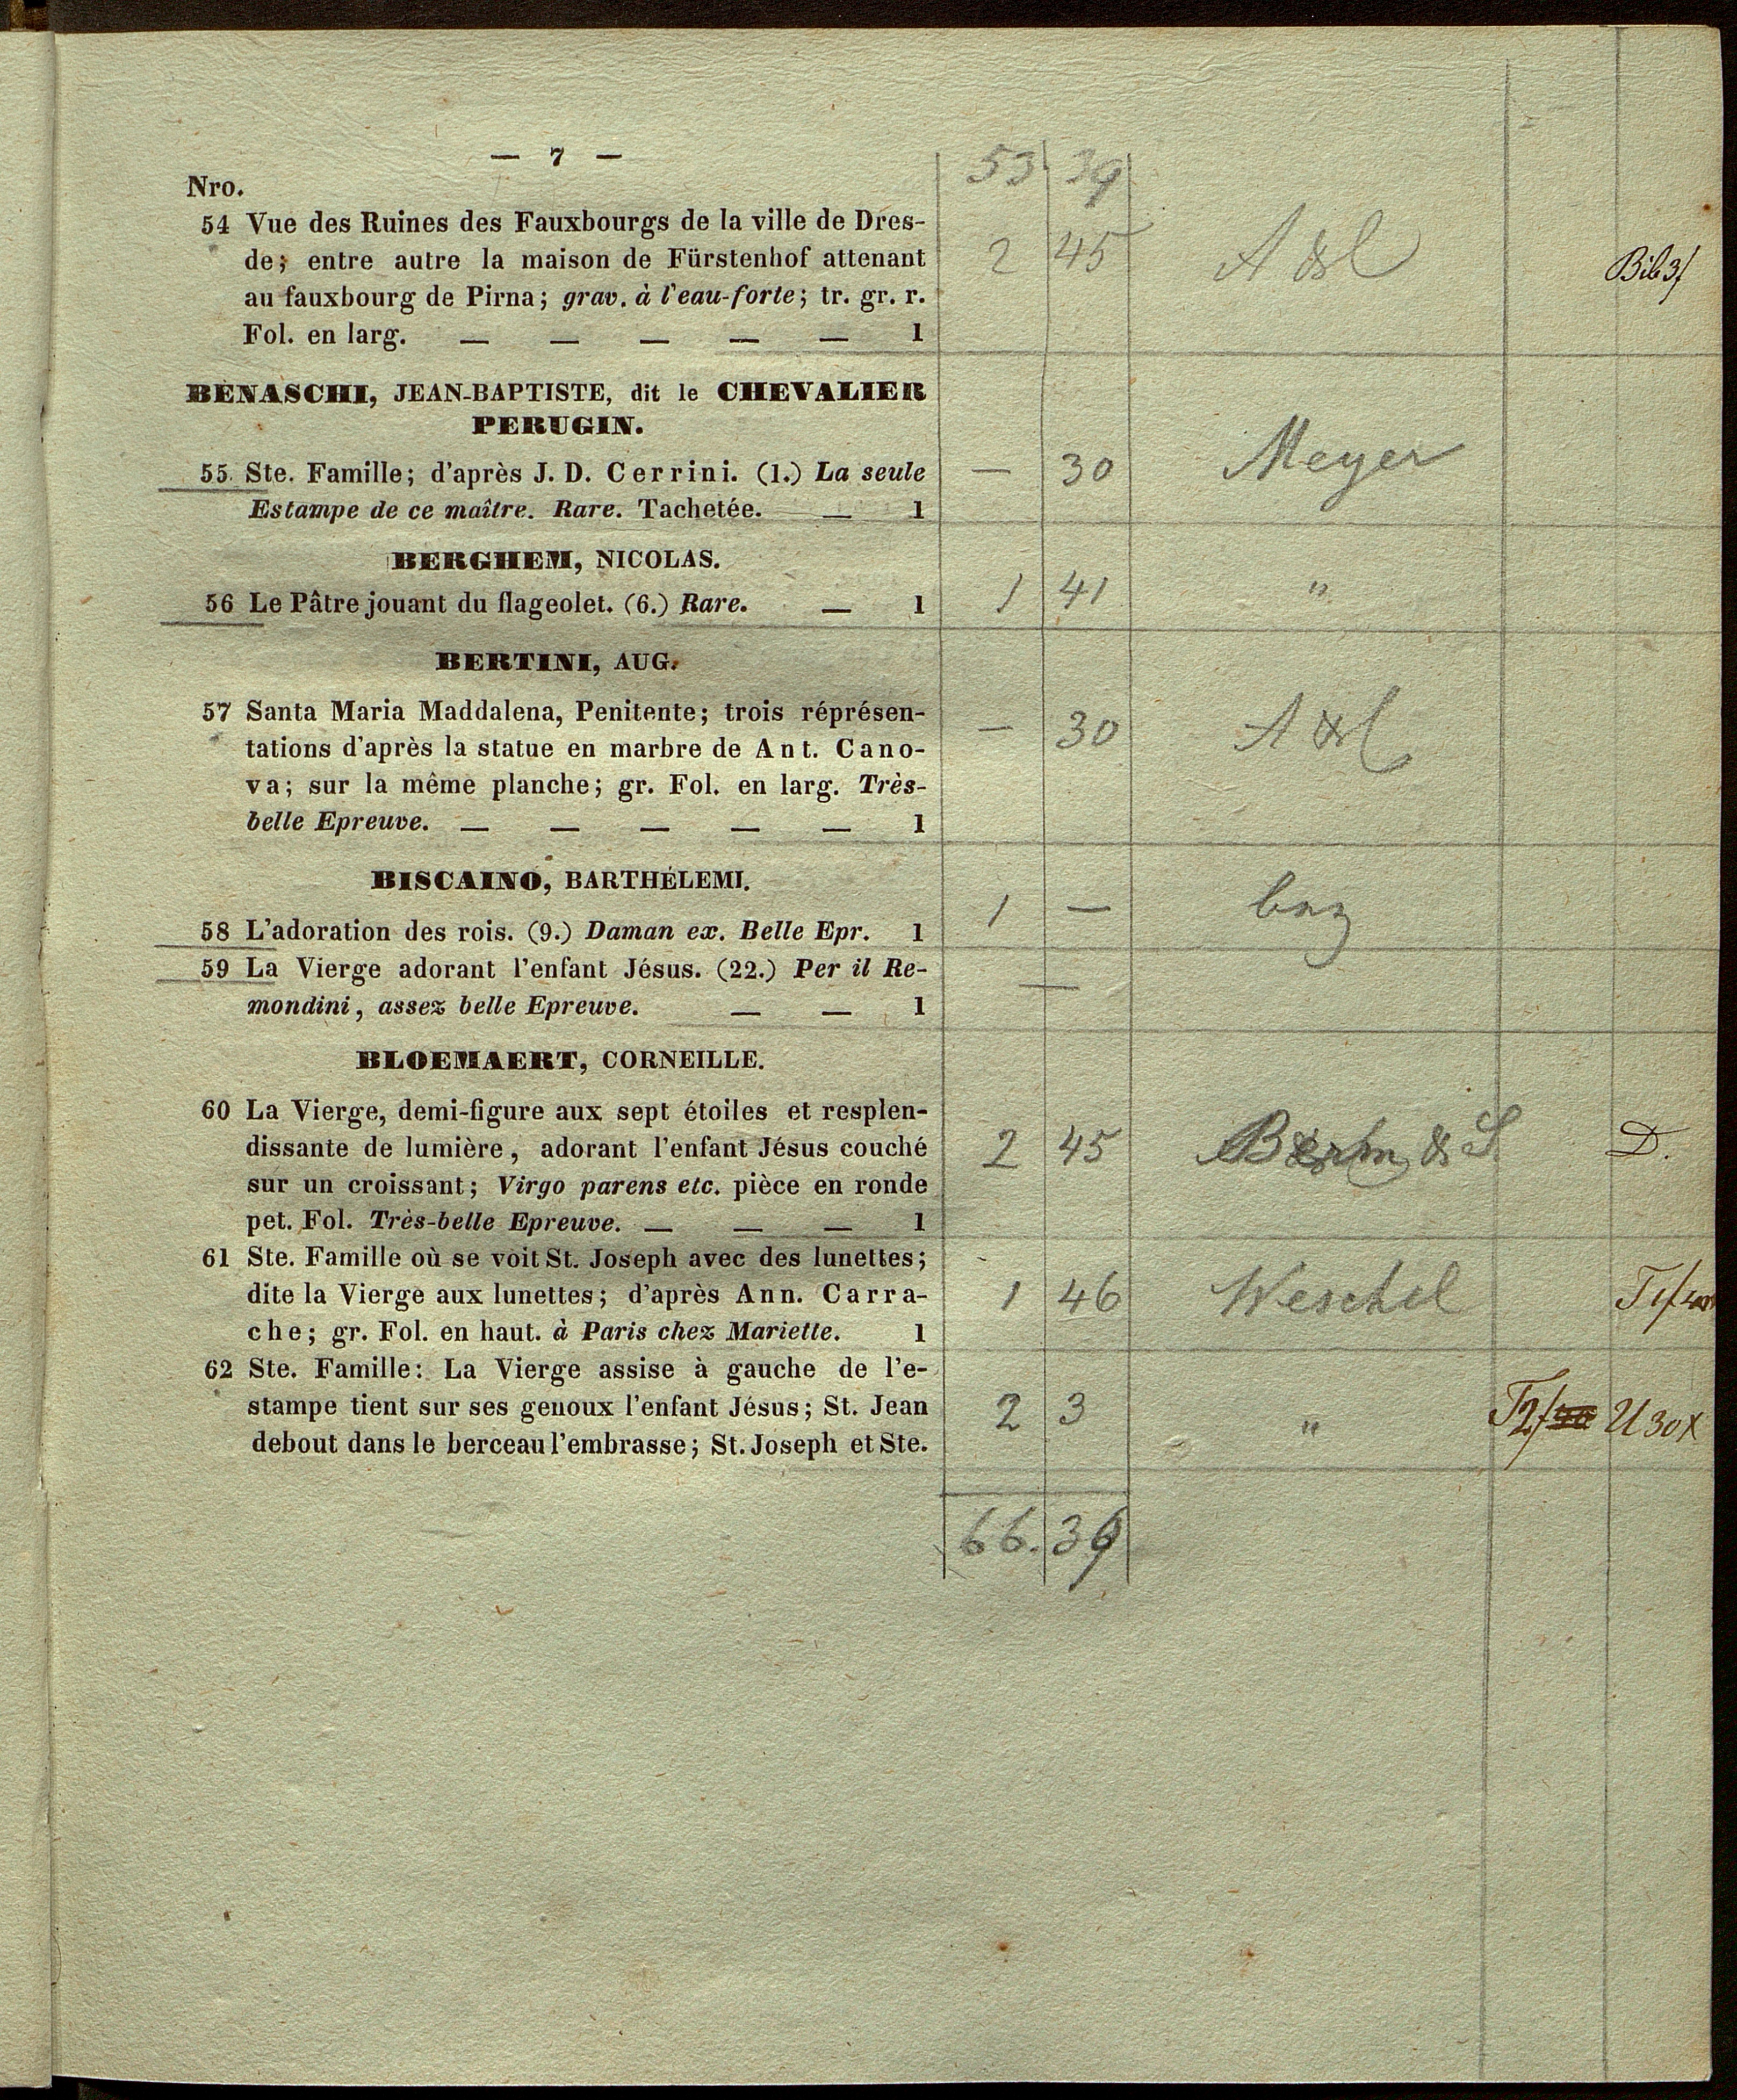 — 7 —
53 39
Nro.
54 Vue des Ruines des Fauxbourgs de la ville de Dres-
de; entre autre la maison de Fürstenhof attenant 2 45 A & C Bib 3f
au fauxbourg de Pirna; grav. à l'eau-forte; tr. gr. r.
Fol. en larg. — — — — — 1
BENASCHI, JEAN-BAPTISTE, dit le CHEVALIER
PERUGIN.
55 Ste. Famille; d'après J. D. Cerrini. (1.) La seule — 30 Meyer
Estampe de ce maître. Rare. Tachetée. — 1
BERGHEM, NICOLAS.
56 Le Pâtre jouant du flageolet. (6.) Rare. — 1 1 41 "
BERTINI, AUG.
57 Santa Maria Maddalena, Penitente; trois réprésen- — 30 A & C
tations d'après la statue en marbre de Ant. Cano-
va; sur la même planche; gr. Fol. en larg. Très-
belle Epreuve. — — — — — 1
BISCAINO, BARTHÉLEMI.
58 L'adoration des rois. (9.) Daman ex. Belle Epr. 1 1 —
59 La Vierge adorant l'enfant Jésus. (22.) Per il Re- —
mondini, assez belle Epreuve. — — 1
BLOEMAERT, CORNEILLE.
60 La Vierge, demi-figure aux sept étoiles et resplen-
dissante de lumière, adorant l'enfant Jésus couché 2 45 & S D.
sur un croissant; Virgo parens etc. pièce en ronde
pet. Fol. Très-belle Epreuve. — — — 1
61 Ste. Famille où se voit St. Joseph avec des lunettes;
dite la Vierge aux lunettes; d'après Ann. Carra- 1 46 Weschel
che; gr. Fol. en haut. à Paris chez Mariette. 1
62 Ste. Famille: La Vierge assise à gauche de l'e-
stampe tient sur ses genoux l'enfant Jésus; St. Jean 2 3 " T2f U 30x
debout dans le berceau l'embrasse; St. Joseph et Ste.
66. 39